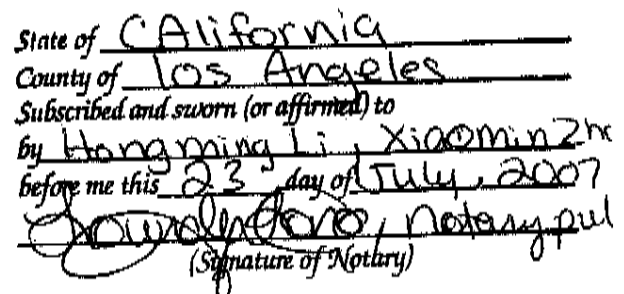 State of CAlifornia
County of los Angeles
Subscribed and sworn (or affirmed) to
by Hongming Li, Xiaomin Zh
before me this 23 day of July, 2007
, Notary pul
(Signature of Notary)